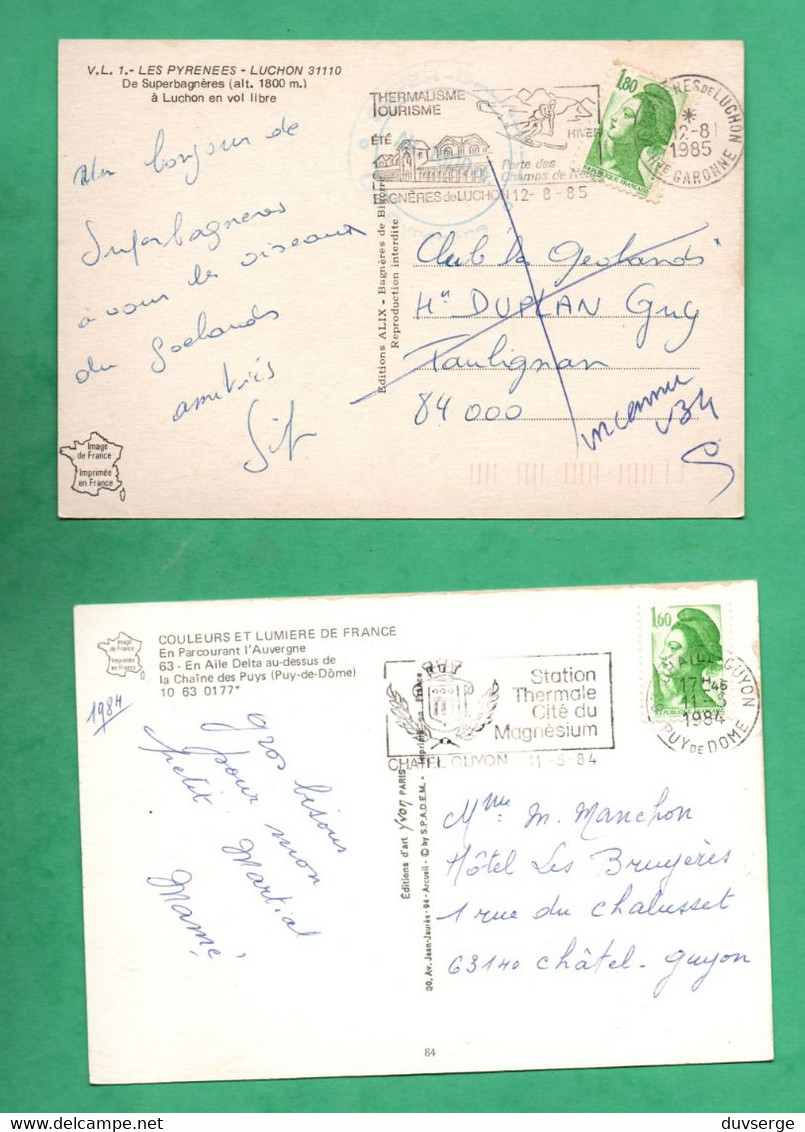 V.L. 1.- LES PYRENEES - LUCHON 31110
De Superbagnères (alt. 1800 m.)
à Luchon en vol libre
Un bonjour de
Superbagneres
à vous les oiseaux
du Goelands
amitiés
Image
de France
Imprimée
en France
Editions ALIX - Bagnères de Bigorre
Reproduction interdite
THERMALISME
TOURISME
ÉTÉ
HIVER
Perle des
Champs de Neige
BAGNÈRES de LUCHON 12-8-85
1,80
REPUBLIQUE FRANÇAISE
12-8
1985
HTE GARONNE
Club la Goelands
Mr DUPLAN Guy
Taulignan
84 000
inconnu
Image
de France
Imprimée
en France
COULEURS ET LUMIERE DE FRANCE
En Parcourant l'Auvergne
63 - En Aile Delta au-dessus de
la Chaîne des Puys (Puy-de-Dôme)
10 63 0177*
1984
gros bisous
pour mon
petit Martial
Mamé
Éditions d'art Yvon PARIS
20, Av. Jean-Jaurès - 94 - Arcueil - © by S.P.A.D.E.M. - Imprimé en France
84
Station
Thermale
Cité du
Magnésium
CHATEL GUYON 11-5-84
1,60
CHATEL GUYON
17H45
11-5
1984
PUY DE DOME
Mme M. Manchon
Hôtel Les Bruyères
1 rue du chalusset
63140 châtel-guyon
duvserge